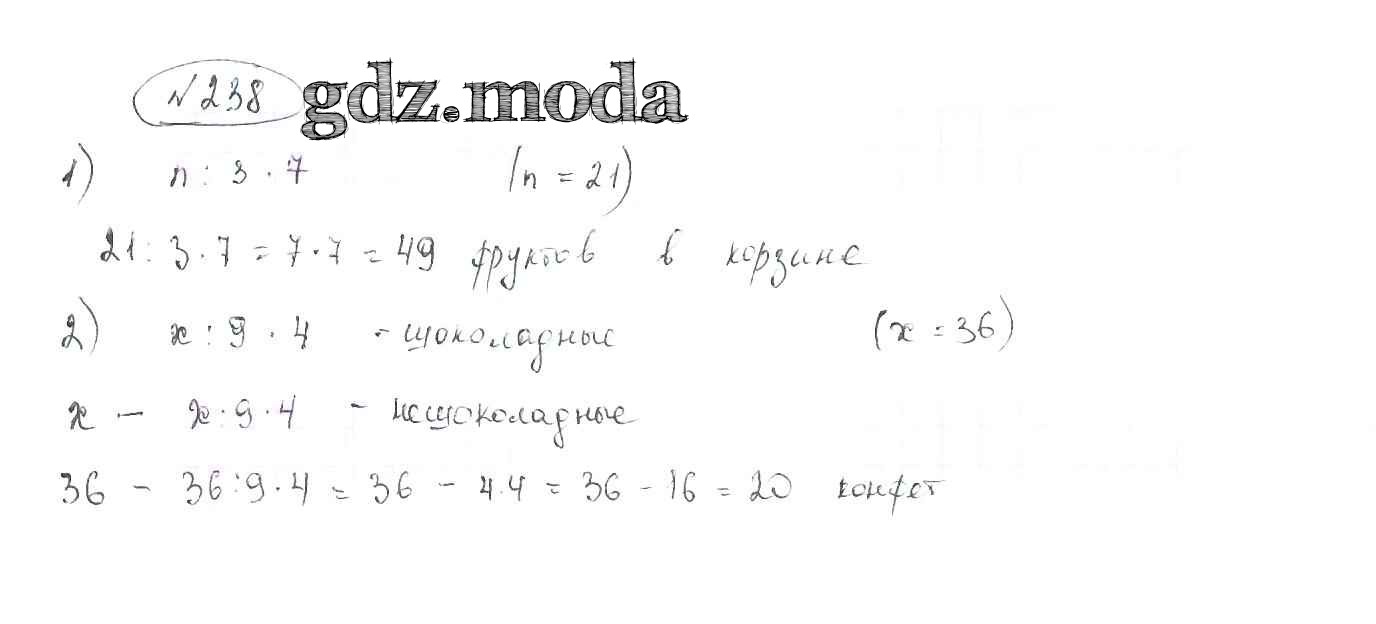 №238 gdz.moda
1) n : 3 · 7 (n = 21)
21 : 3 · 7 = 7 · 7 = 49 фруктов в корзине
2) x : 9 · 4 - шоколадные (x = 36)
x - x : 9 · 4 - нешоколадные
36 - 36 : 9 · 4 = 36 - 4 · 4 = 36 - 16 = 20 конфет